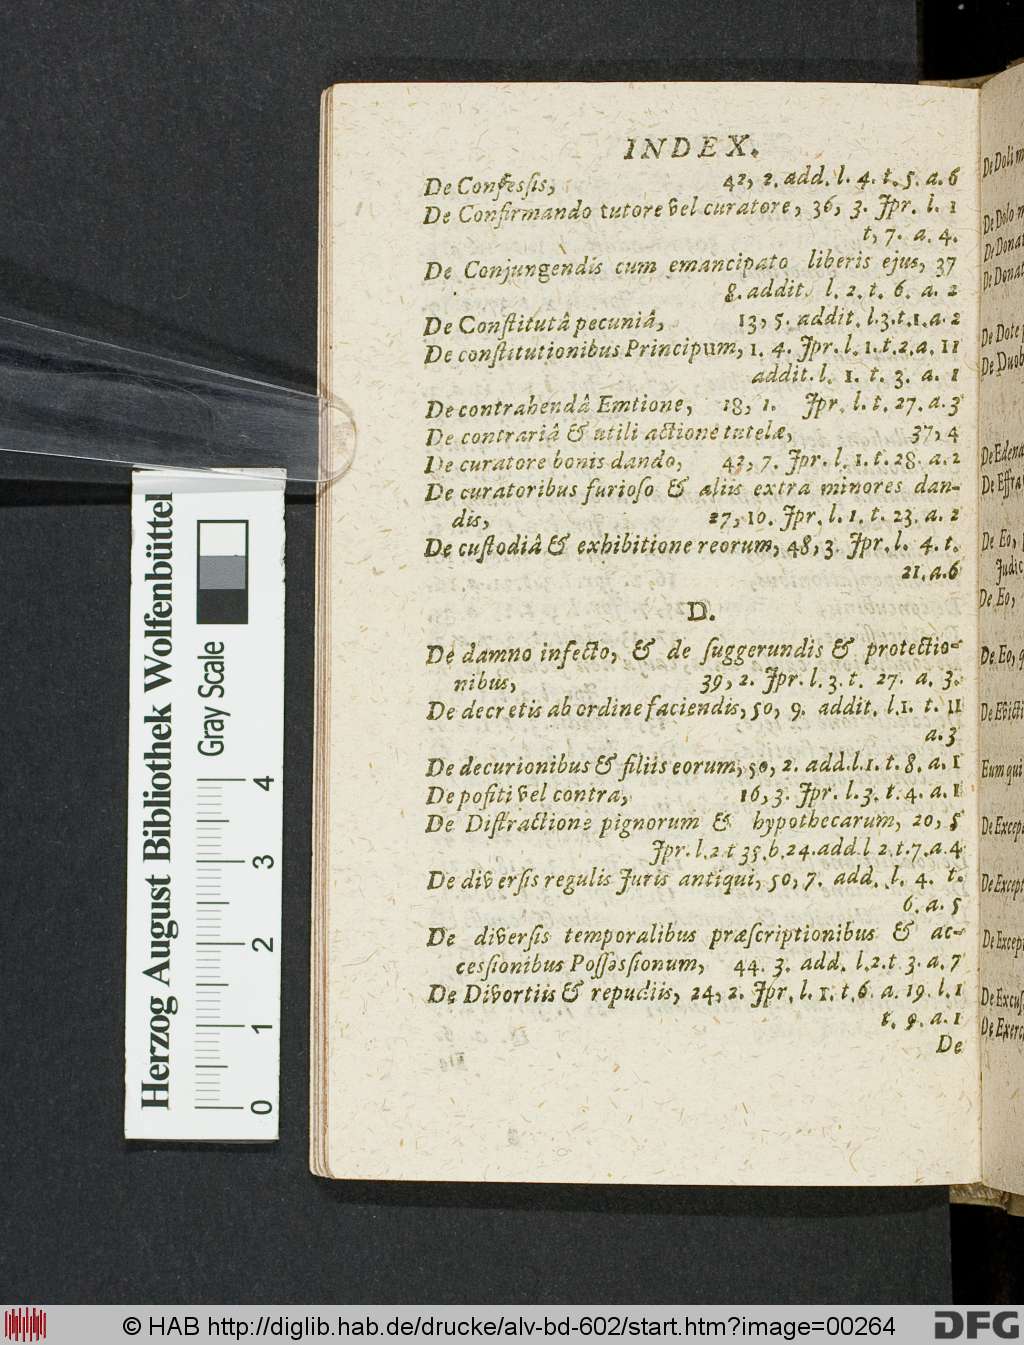 INDEX.
De Confessis, 42, 2. add. l. 4. t. 5. a. 6
De Confirmando tutore vel curatore, 36, 3. Jpr. l. 1
t, 7. a. 4.
De Conjungendis cum emancipato liberis ejus, 37
8. addit. l. 2. t. 6. a. 2
De Constitutâ pecuniâ, 13, 5. addit. l.3.t.1.a.2
De constitutionibus Principum, 1. 4. Jpr. l. 1.t.2.a. 11
addit. l. 1. t. 3. a. 1
De contrahendâ Emtione, 18, 1. Jpr. l. t. 27. a. 3
De contrariâ & utili actione tutelæ, 37, 4
De curatore bonis dando, 43, 7. Jpr. l. 1. t. 28. a. 2
De curatoribus furioso & aliis extra minores dan-
dis, 27, 10. Jpr. l. 1. t. 23. a. 2
De custodiâ & exhibitione reorum, 48, 3. Jpr. l. 4. t.
21. a. 6
D.
De damno infecto, & de suggerundis & protectio-
nibus, 39, 2. Jpr. l. 3. t. 27. a. 3.
De decretis ab ordine faciendis, 50, 9. addit. l.1. t. 11
a. 3
De decurionibus & filiis eorum, 50, 2. add. l. 1. t. 8. a. 1
De positi vel contra, 16, 3. Jpr. l. 3. t. 4. a. 1
De Distractione pignorum & hypothecarum, 20, 5
Jpr. l. 2 t 35. b. 24. add. l 2. t. 7. a. 4
De diversis regulis Juris antiqui, 50, 7. add. l. 4. t.
6. a. 5
De diversis temporalibus præscriptionibus & ac-
cessionibus Possessionum, 44. 3. add. l.2.t 3. a. 7
De Divortiis & repudiis, 24, 2. Jpr. l. 1. t. 6. a. 19. l. 1
t. 9. a. 1
De
De Doli m
De Dolo m
De Donat
De Donat
De Dote p
De Duob
De Edena
De Effra
De Eo,
Judic
De Eo,
De Eo, q
De Evicti
Eum qui
De Excep
De Except
De Excep
De Excus
De Exerc
Herzog August Bibliothek Wolfenbüttel
Gray Scale
0 1 2 3 4
© HAB http://diglib.hab.de/drucke/alv-bd-602/start.htm?image=00264
DFG